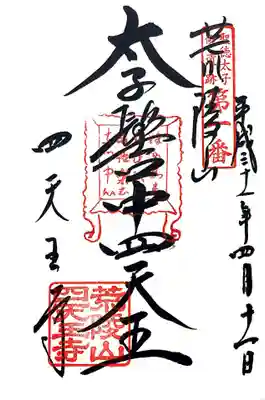 平成三十一年四月十一日
聖徳太子
御遺跡
第一番
荒陵山
太子髻中四天王
四天王寺
荒陵山
四天王寺